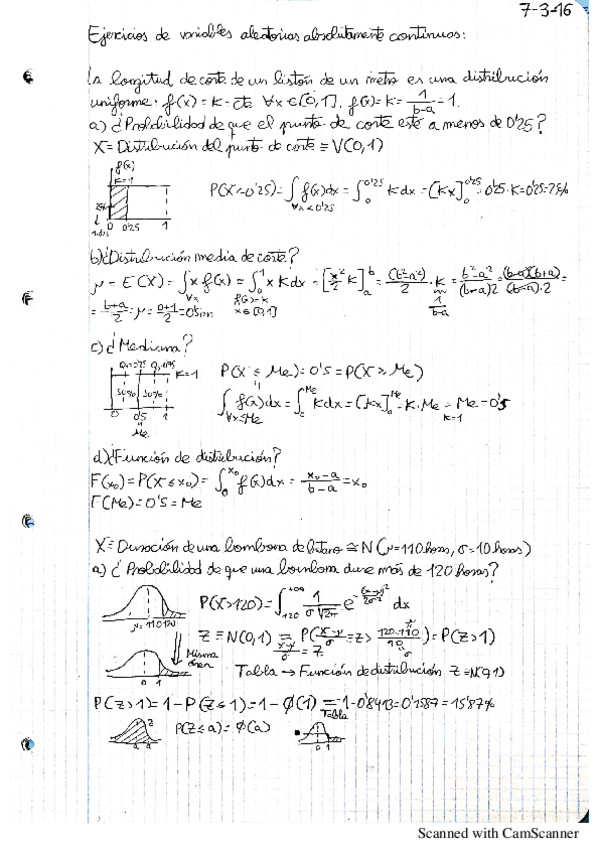 7-3-16
Ejercicios de variables aleatorias absolutamente continuas:
La longitud de corte de un listón de un metro es una distribución
uniforme. f(x) = k = cte ∀x ∈ [0,1]. f(x) = k = 1/(b-a) = 1.
a) ¿Probabilidad de que el punto de corte esté a menos de 0'25?
X = Distribución del punto de corte ≡ U(0,1)
f(x)
k=1
0 0'25 1
P(X<0'25) = ∫∀x<0'25 f(x)dx = ∫₀^0'25 k dx = [kx]₀^0'25 = 0'25·k = 0'25 = 25%
b) ¿Distribución media de corte?
μ = E(X) = ∫∀x x f(x) = ∫₀¹ x k dx = [x²/2 k]ₐᵇ = (b²-a²)/2 · k = (b²-a²)/((b-a)2) = (b-a)(b+a)/((b-a)·2) =
f(x)=k
x∈[0,1]
1/(b-a)
= (b+a)/2 = μ = (0+1)/2 = 0'5m
c) ¿Mediana?
k=1
50% 50%
0 0'5 1
Me
P(X ≤ Me) = 0'5 = P(X ≥ Me)
∫∀x≤Me f(x)dx = ∫₀^Me k dx = [kx]₀^Me = k·Me = Me = 0'5
k=1
d) ¿Función de distribución?
F(x₀) = P(X ≤ x₀) = ∫₀^x₀ f(x)dx = (x₀-a)/(b-a) = x₀
F(Me) = 0'5 = Me
X ≡ Duración de una bombona de butano ≅ N(μ=110 horas, σ=10 horas)
a) ¿Probabilidad de que una bombona dure más de 120 horas?
μ=110 120
P(X>120) = ∫₁₂₀^+∞ 1/(σ√2π) e^-(x-μ)²/2σ² dx
Z ≡ N(0,1) = P((X-μ)/σ = Z > (120-110)/10) = P(Z>1)
(X-μ)/σ = Z
Misma área
0 1
Tabla → Función de distribución Z ≡ N(0,1)
P(Z>1) = 1 - P(Z≤1) = 1 - Ø(1) = 1 - 0'8413 = 0'1587 = 15'87%
Tabla
P(Z≤a) = Ø(a)
0 1
Scanned with CamScanner